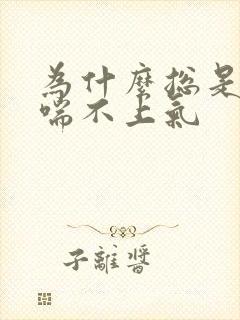 為什麼總是
喘不上氣
子離醬